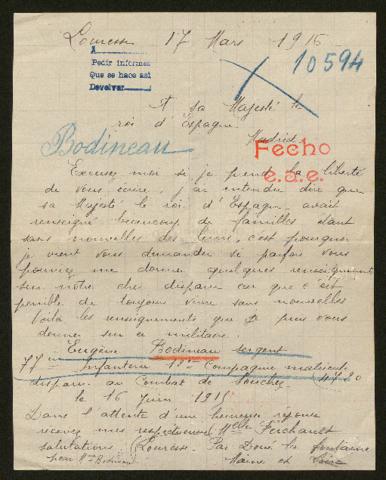 Louresse 17 Mars 1916
A
Pedir informes
Que se hace así
Devolver
10594
A sa Majesté le
roi d'Espagne
Madrid
Bodineau
Fecho
e.a.e.
Excusez moi si je prend la liberté
de vous écrire, j'ai entendu dire que
sa Majesté le roi d'Espagne avait
renseigné beaucoup de familles étant
sans nouvelles des leurs, c'est pourquoi
je vient vous demander si parfois vous
pourriez me donner quelques renseignements
sur notre cher disparu car que c'est
pénible de toujours vivre sans nouvelles
Voilà les renseignements que je puis vous
donner sur ce militaire.
Eugène Bodineau sergent
77me Infanterie Compagnie
disparu au Combat de Souchez
le 16 Juin 1915
Dans l'attente d'une heureuse réponse
recevez mes respectueuses
salutations (Louresse Par Doué la fontaine
Maine et Loire